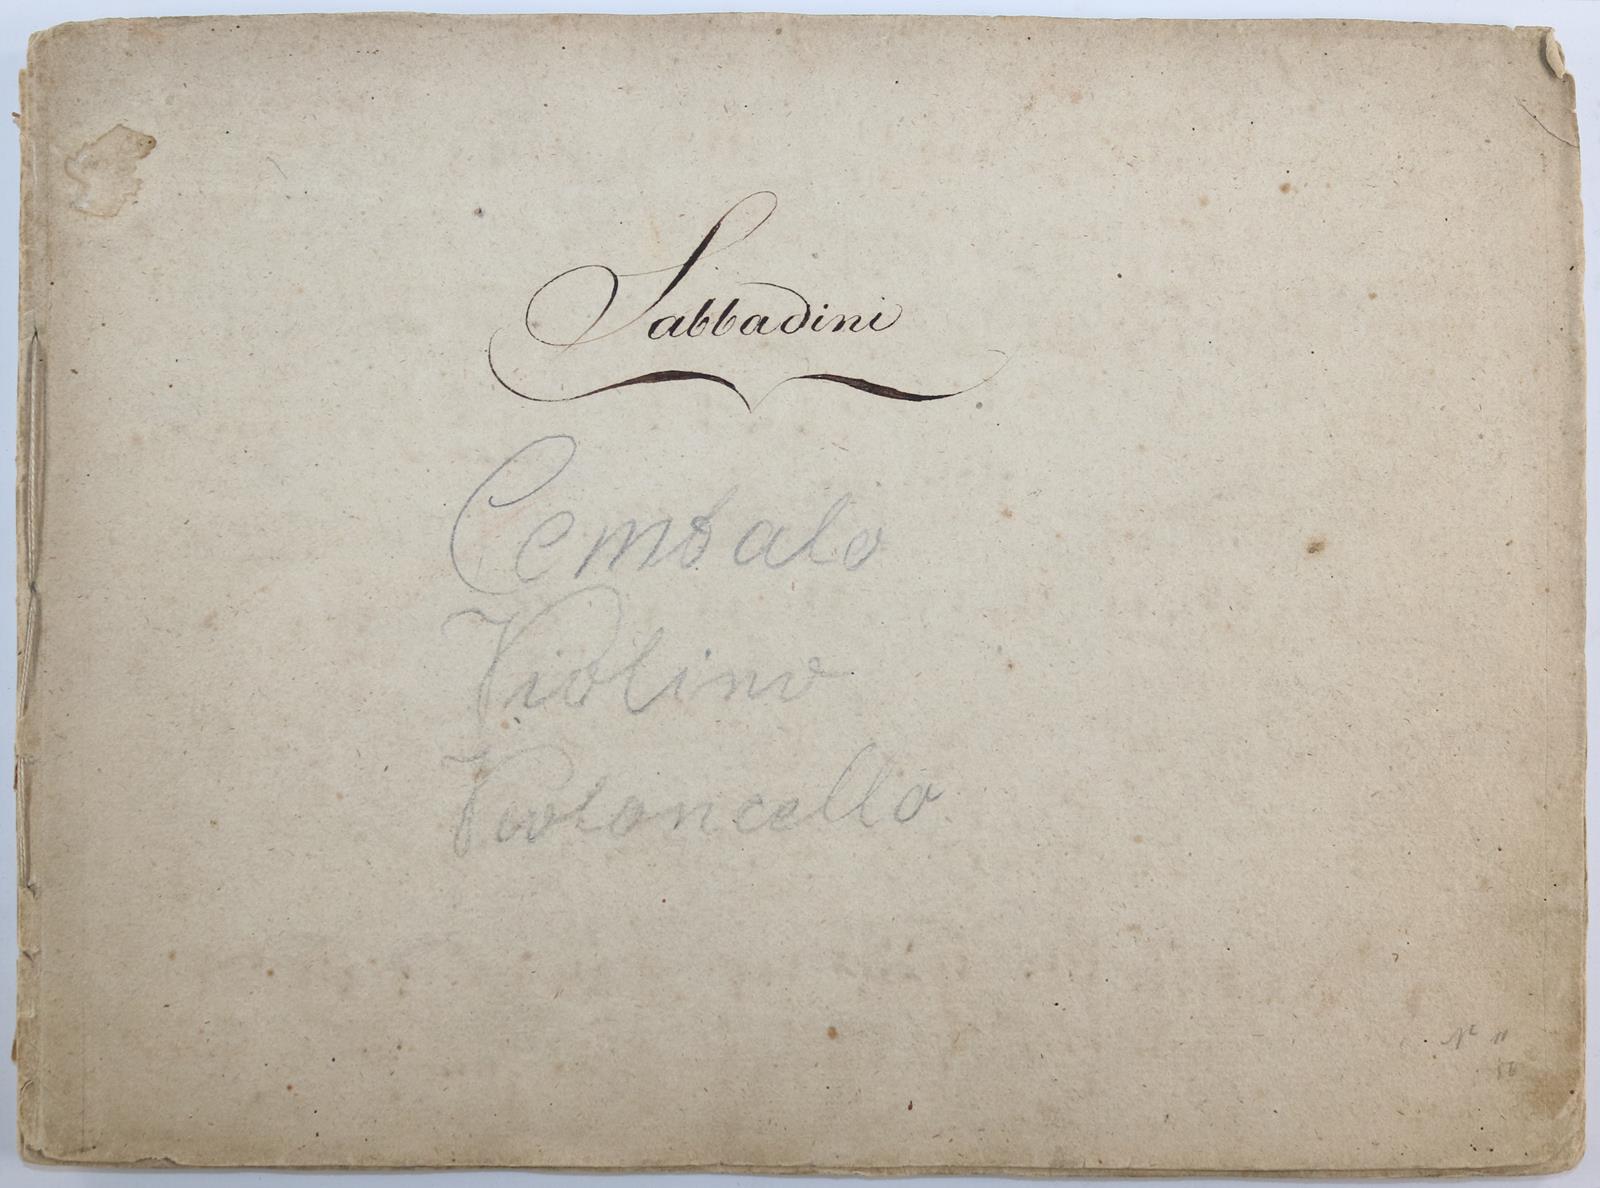 Sabbadini
Cembalo
Violino
Violoncello